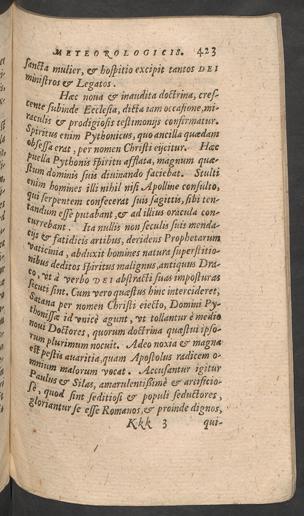 METEOROLOGICIS. 423
sancta mulier, & hospitio excipit tantos DEI
ministros & Legatos.
Hæc noua & inaudita doctrina, cres-
cente subinde Ecclesia, dicta tam occasione, mi-
raculis & prodigiosis testimonijs confirmatur.
Spiritus enim Pythonicus, quo ancilla quædam
obsessa erat, per nomen Christi eijcitur. Hæc
puella Pythonis spiritu afflata, magnum quæ-
stum dominis suis diuinando faciebat. Stulti
enim homines illi nihil nisi Apolline consulto,
qui serpentem confecerat suis sagittis, sibi ten-
tandum esse putabant, & ad illius oracula con-
currebant. Ita nullis non seculis suis menda-
tijs & fatidicis artibus, deridens Prophetarum
vaticinia, abduxit homines natura superstitio-
nibus deditos spiritus malignus, antiquus Dra-
co, vt à verbo DEI abstracti suas imposturas
secuti sint. Cum vero quæstus huic intercideret,
Satana per nomen Christi eiecto, Domini Py-
thonissæ id vnicè agunt, vt tollantur è medio
noui Doctores, quorum doctrina quæstui ipso-
rum plurimum nocuit. Adeo noxia & magna
est pestis auaritia, quam Apostolus radicem o-
mnium malorum vocat. Accusantur igitur
Paulus & Silas, amarulentissimè & artificio-
sè, quod sint seditiosi & populi seductores,
gloriantur se esse Romanos, & proinde dignos,
Kkk 3 qui-